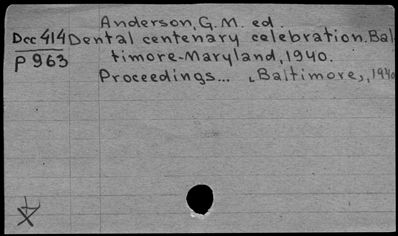 Anderson, G.M. ed.
Dcc 414 Dental centenary celebration. Bal
P 963 timore-Maryland, 1940.
Proceedings... [Baltimore], 1940